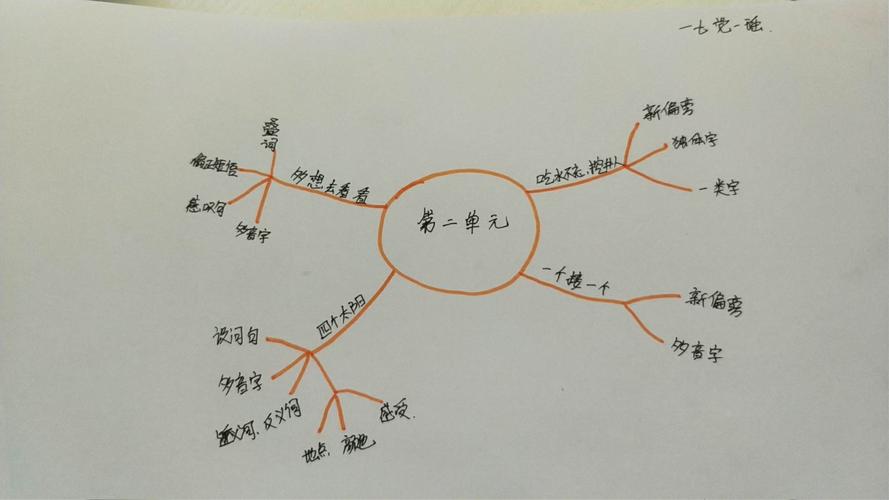 一七党一瑶.
第二单元
吃水不忘挖井人
新偏旁
独体字
一类字
一个接一个
新偏旁
多音字
多想去看看
叠词
偏正短语
感叹句
多音字
四个太阳
设问句
多音字
近义词、反义词
地点
颜色
感受.